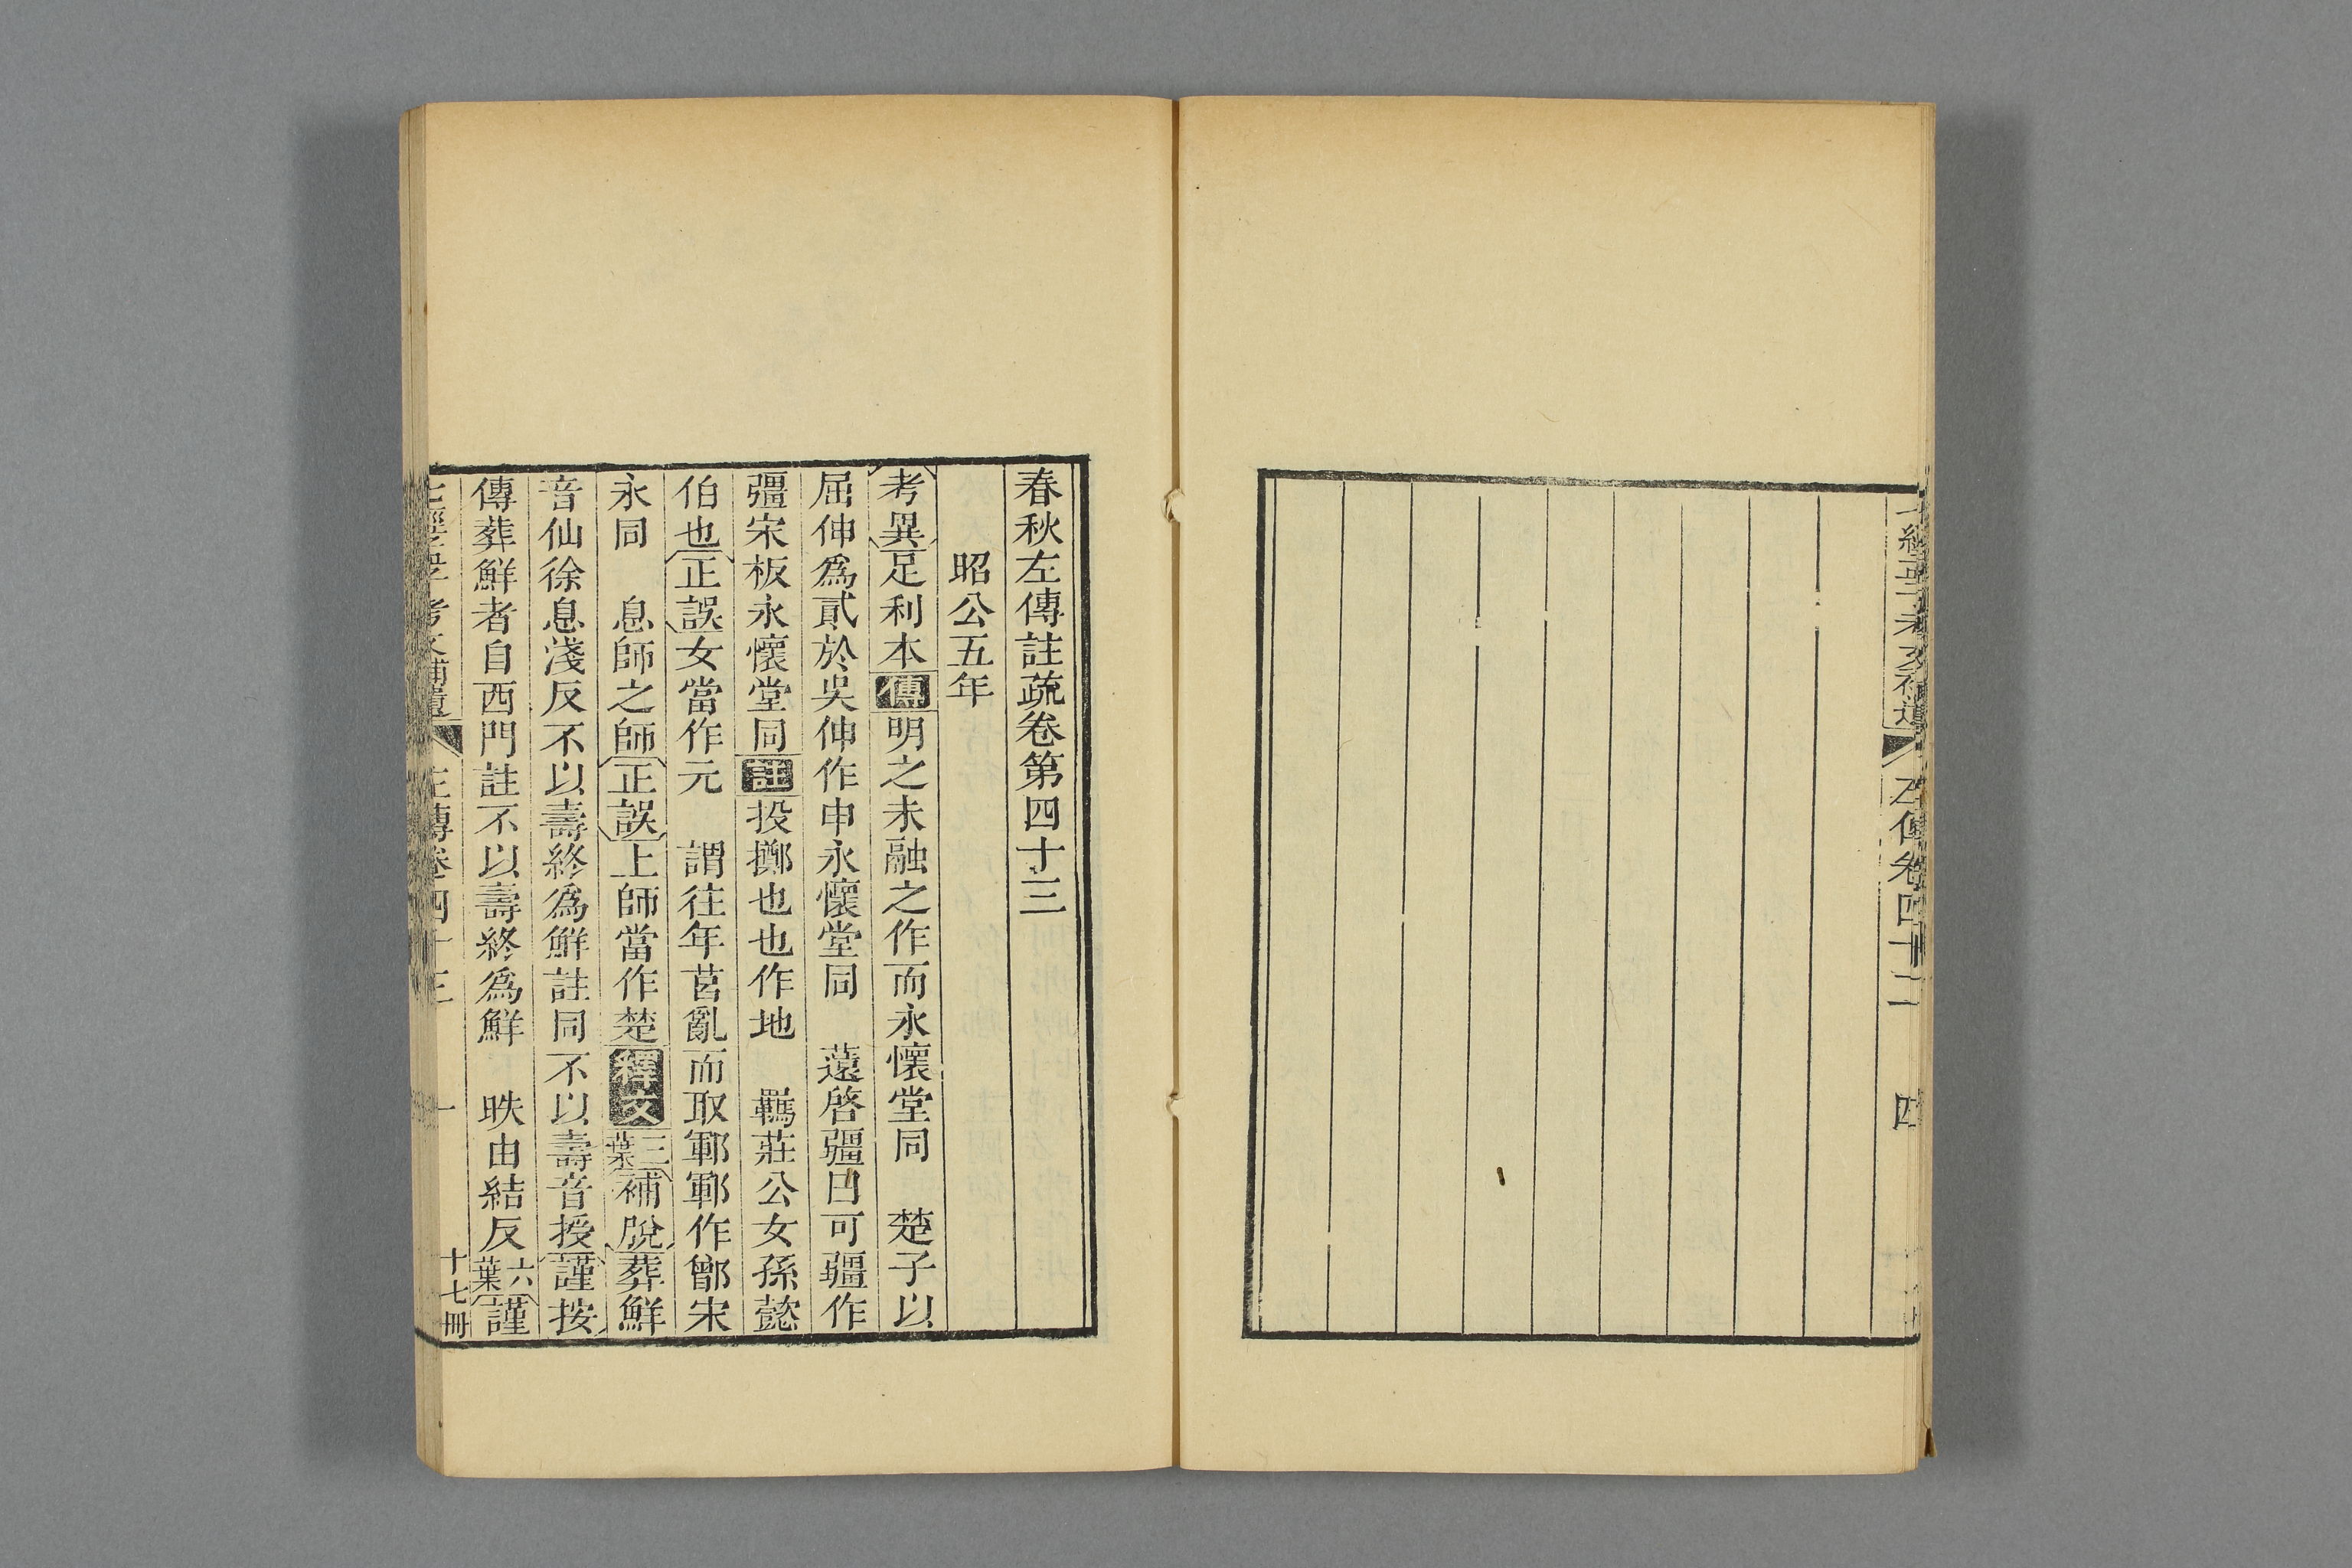 左傳卷四十二
四
春秋左傳註疏卷第四十三
昭公五年
考異足利本傳明之未融之作而永懷堂同　楚子以
屈伸爲貳於吳伸作申永懷堂同　薳啓疆曰可疆作
彊宋板永懷堂同註投擲也也作地　羈莊公女孫懿
伯也正誤女當作元　謂往年莒亂而取鄆鄆作鄫宋
永同　息師之師正誤上師當作楚釋文三葉補脫葬鮮
音仙徐息淺反不以壽終爲鮮註同不以壽音授謹按
傳葬鮮者自西門註不以壽終爲鮮　昳由結反六葉謹
七經孟子考文補遺
左傳卷四十三
一
十七冊